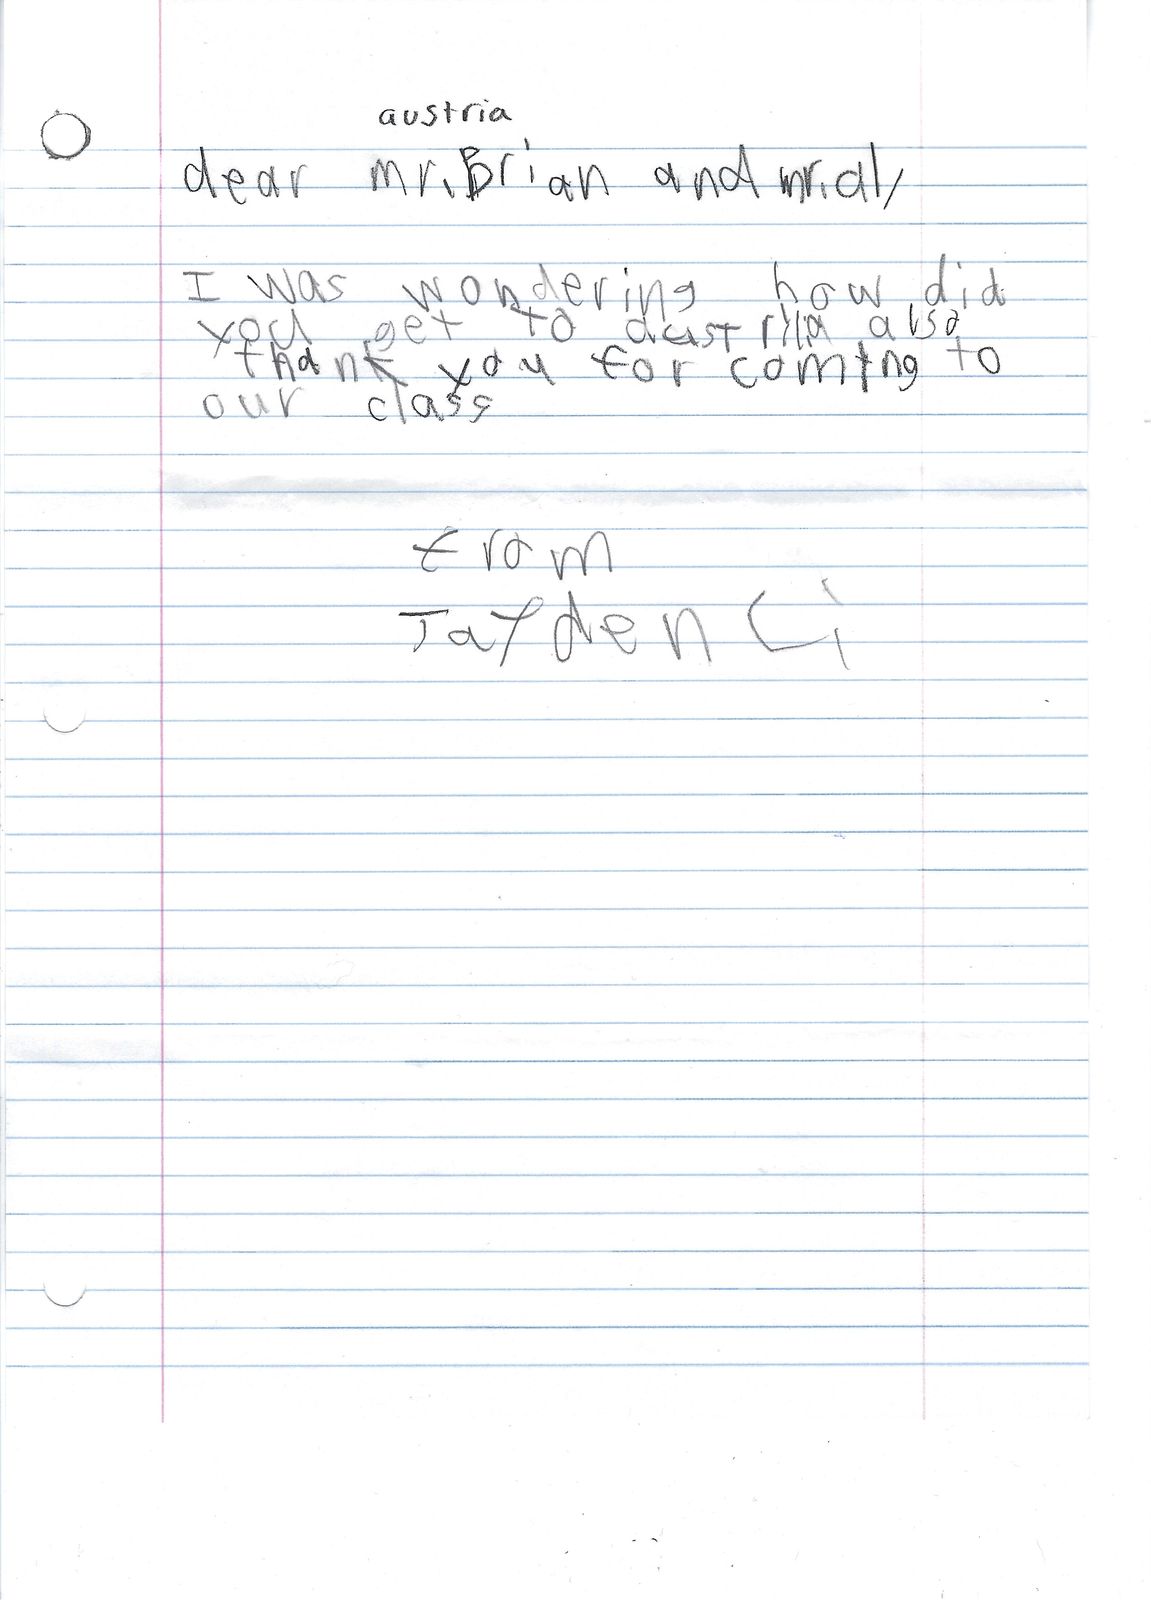 austria
dear mr. Brian and mr. al,
I was wondering how did
you get to austrila also
thank you for coming to
our class
from
Jayden Li